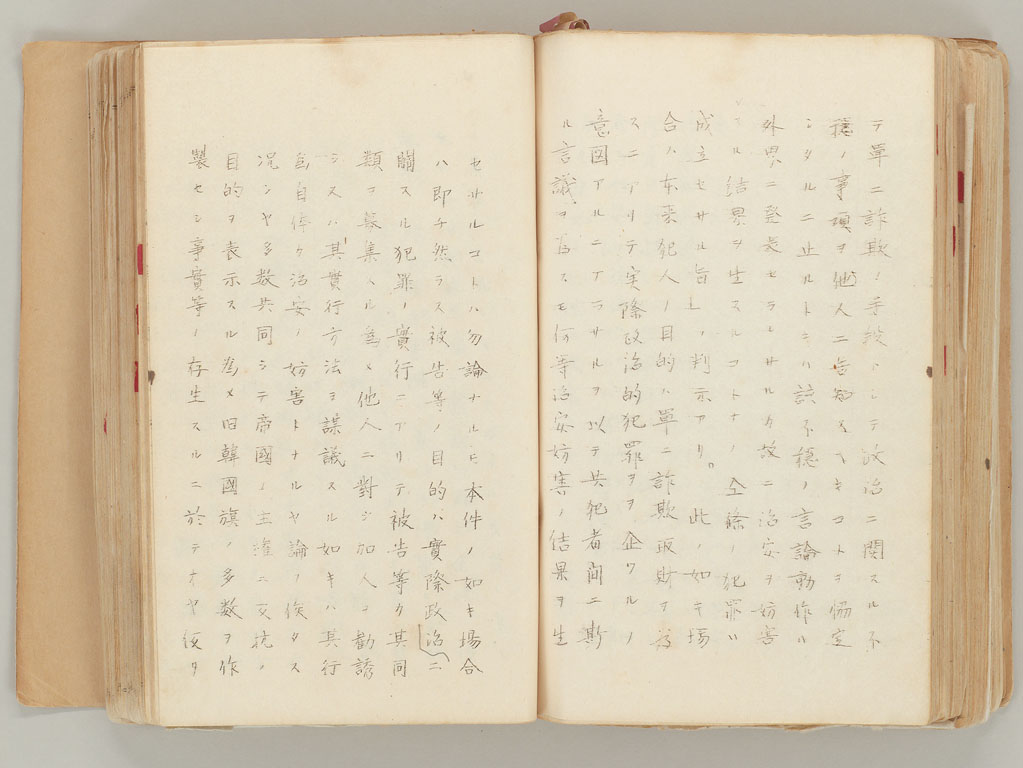 テ單ニ詐欺ノ手段トシテ政治ニ関スル不
穏ノ事項ヲ他人ニ告知スヘキコトヲ協定
シタルニ止ルトキハ該不穏ノ言論動作ハ
外界ニ發表セラレサルカ故ニ治安ヲ妨害
スル結果ヲ生スルコトナク仝條ノ犯罪ハ
成立セサル旨」ノ判示アリ。此ノ如キ場
合ハ本来犯人ノ目的ハ單ニ詐欺取財ヲ為
スニアリテ実際政治的犯罪ヲ企ツルノ
意図アルニアラサルヲ以テ共犯者間ニ斯
ル言議ヲ為スモ何等治安妨害ノ結果ヲ生
セサルコトハ勿論ナルモ本件ノ如キ場合
ハ即チ然ラス被告等ノ目的ハ實際政治ニ
關スル犯罪ノ實行ニアリテ被告等カ其同
類ヲ募集スル為メ他人ニ對シ加入ヲ勸誘
シ又ハ其實行方法ヲ謀議スル如キハ其行
為自体カ治安ノ妨害トナルヤ論ノ俟タス
况ンヤ多数共同シテ帝國ノ主權ニ反抗ノ
目的ヲ表示スル為メ旧韓國旗ノ多数ヲ作
製セシ事實等ノ存生スルニ於テオヤ